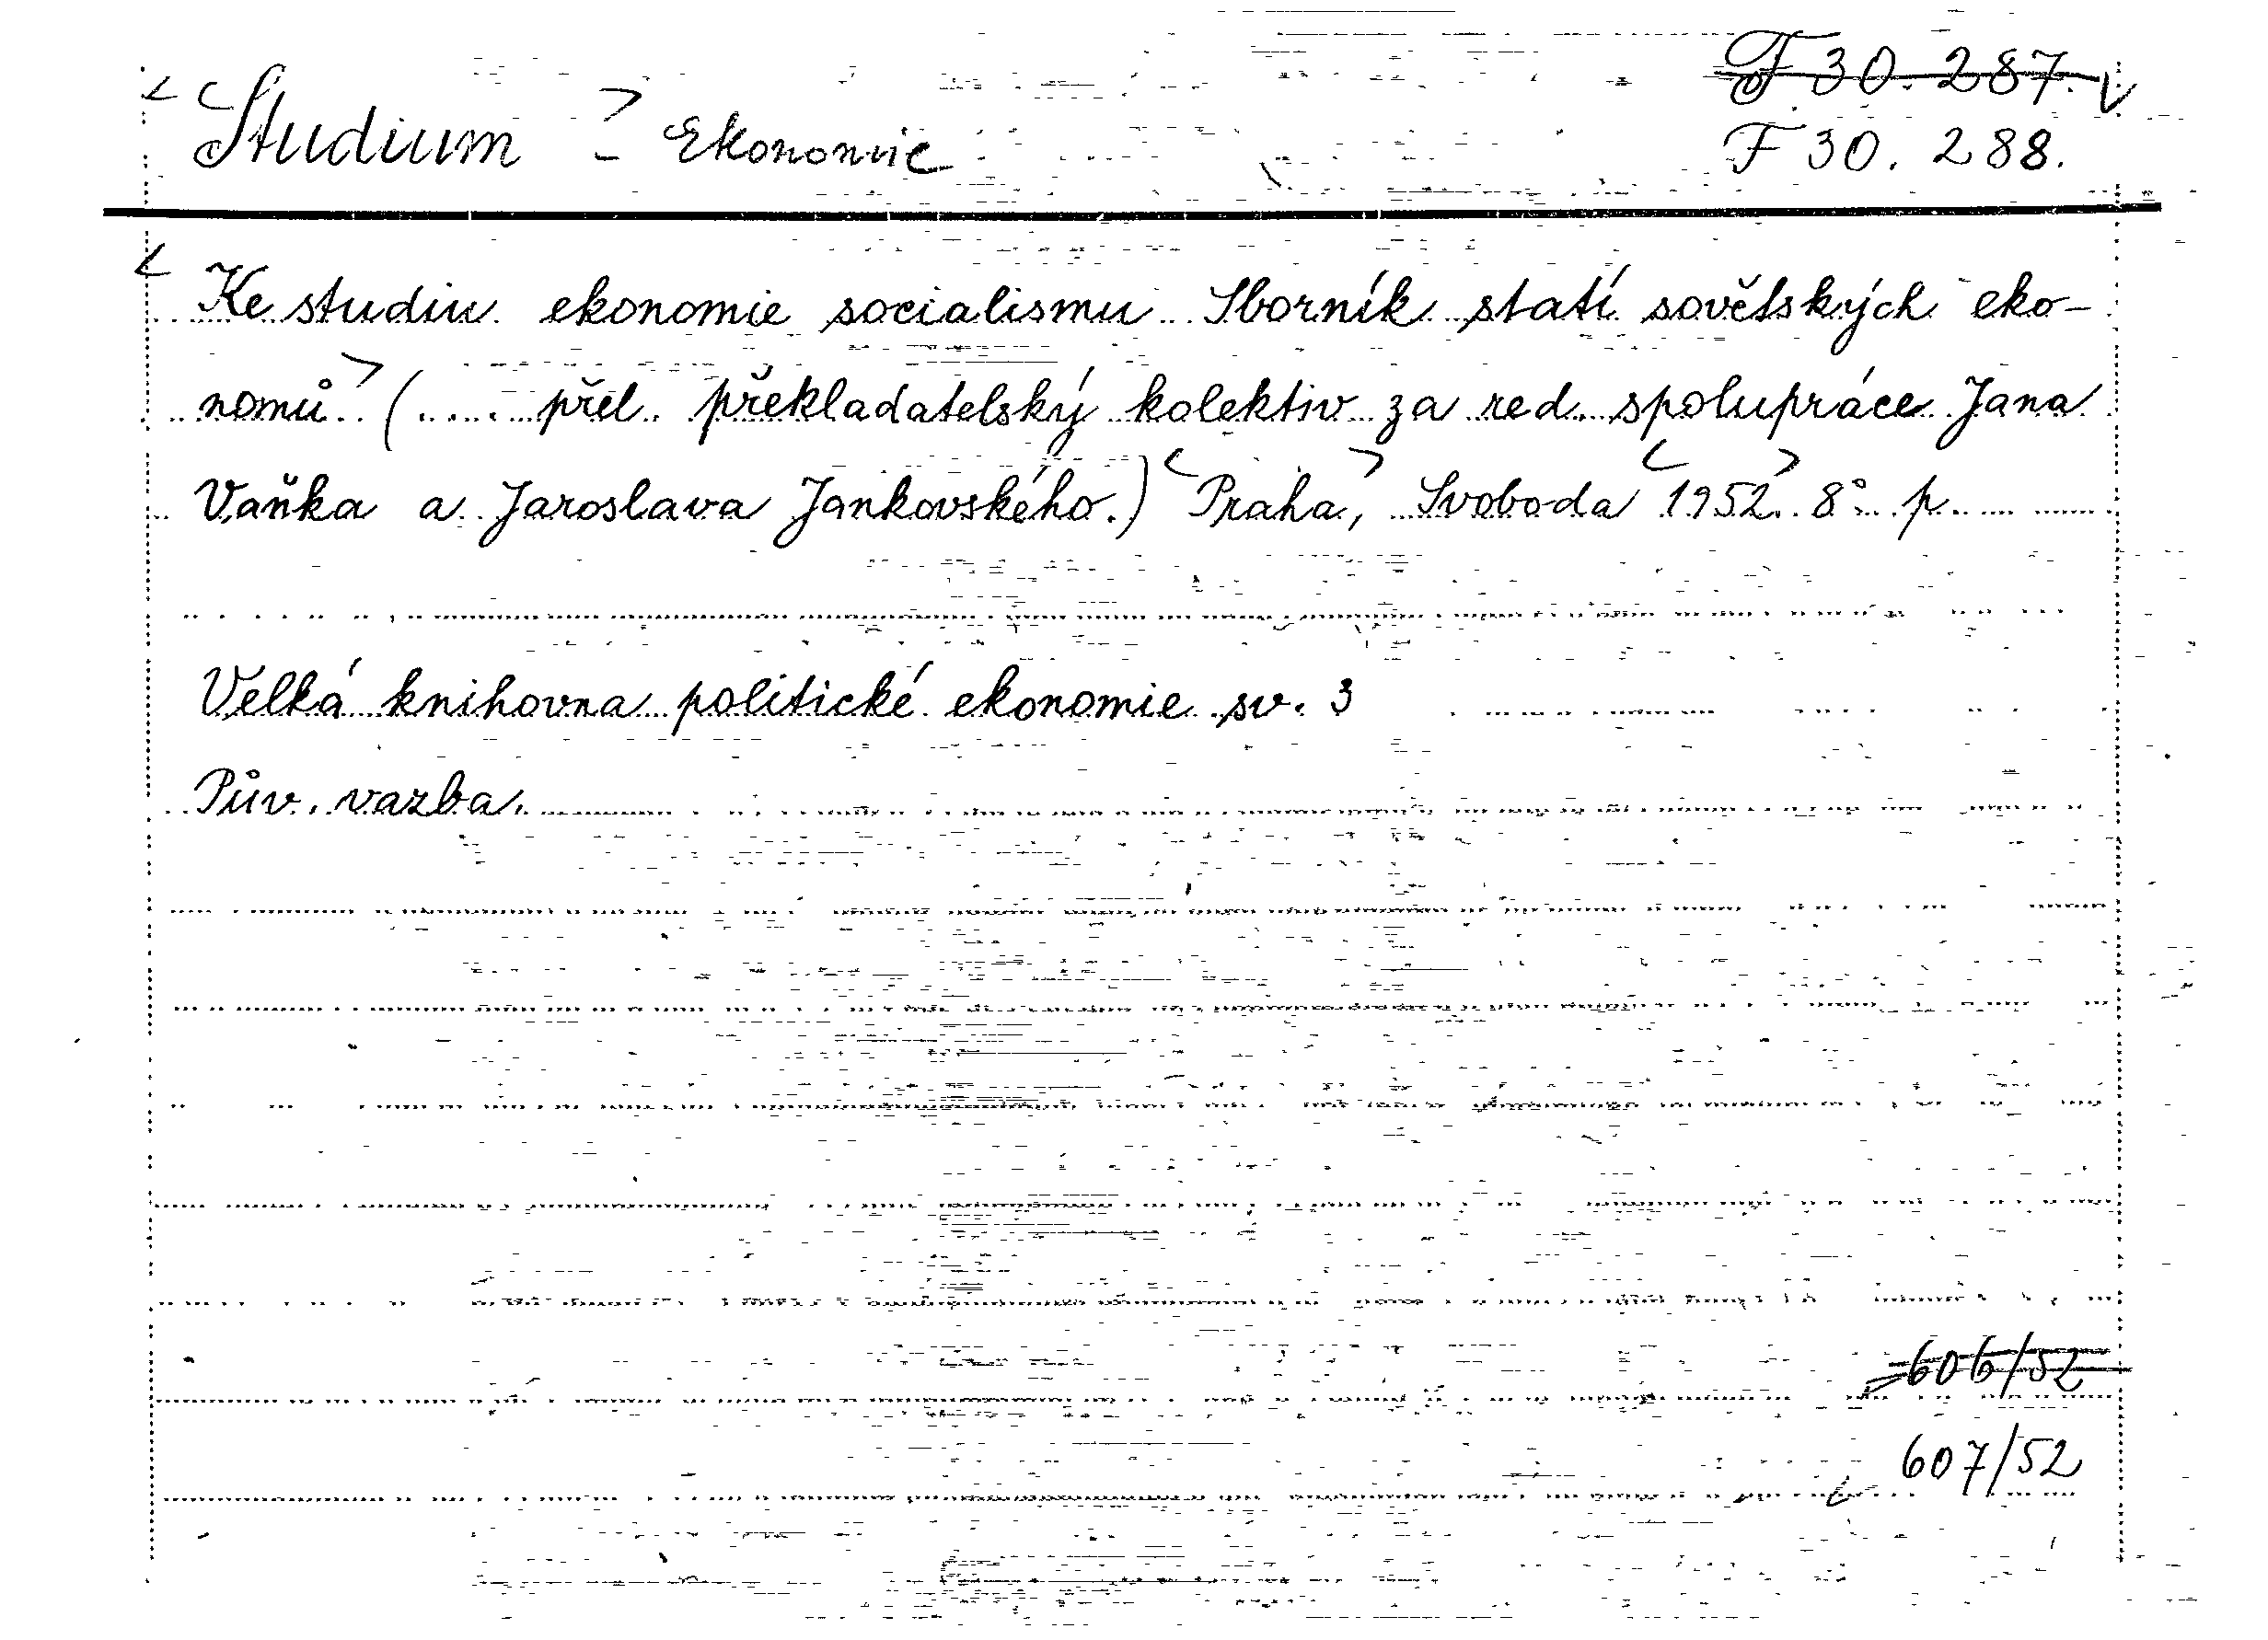 Studium - Ekonomie
F 30.287.
F 30.288.
Ke studiu ekonomie socialismu Sborník statí sovětských eko-
nomů (.... přel. překladatelský kolektiv za red. spolupráce Jana
Vaňka a Jaroslava Jankovského.) Praha, Svoboda 1952. 8° p.
Velká knihovna politické ekonomie sv. 3
Pův. vazba.
606/52
607/52